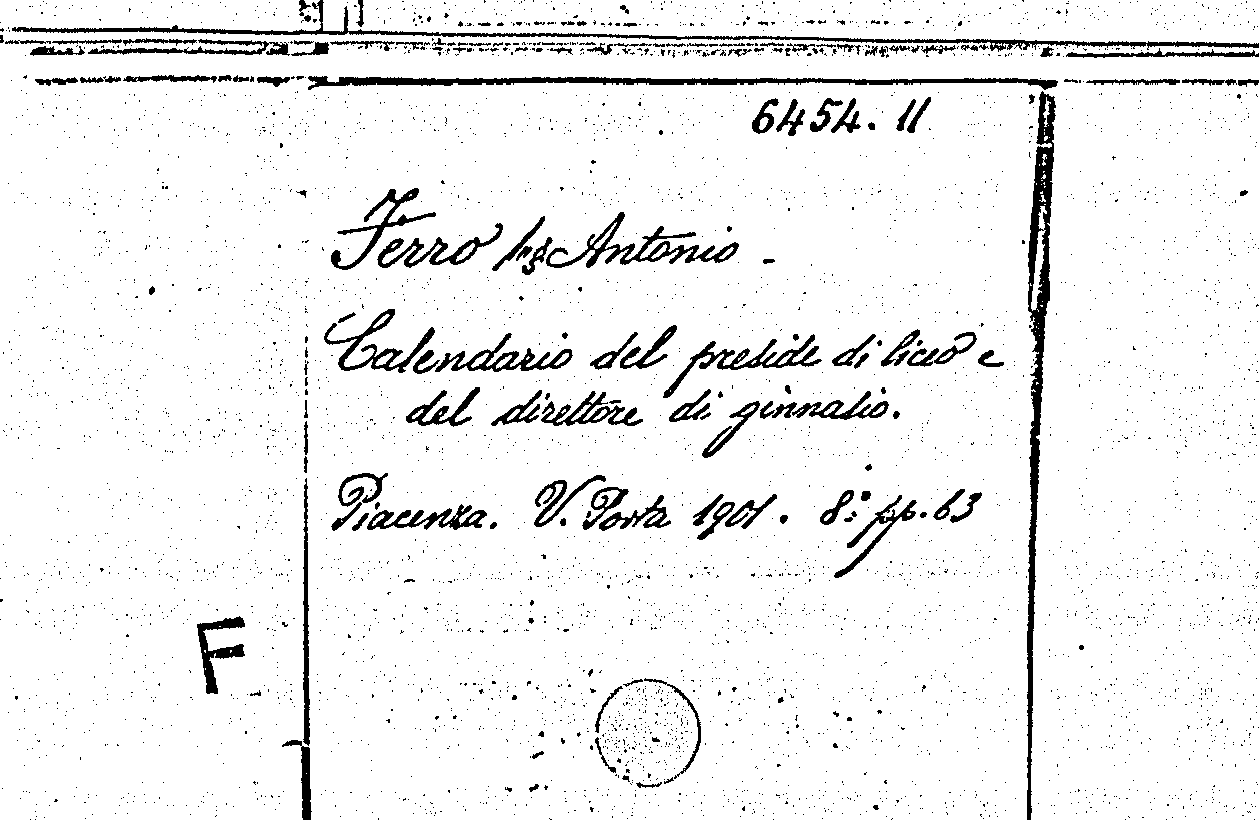 6454. 11
Ferro Antonio -
Calendario del preside di liceo e
del direttore di ginnasio.
Piacenza. V. Porta 1901. 8° pp. 63
F